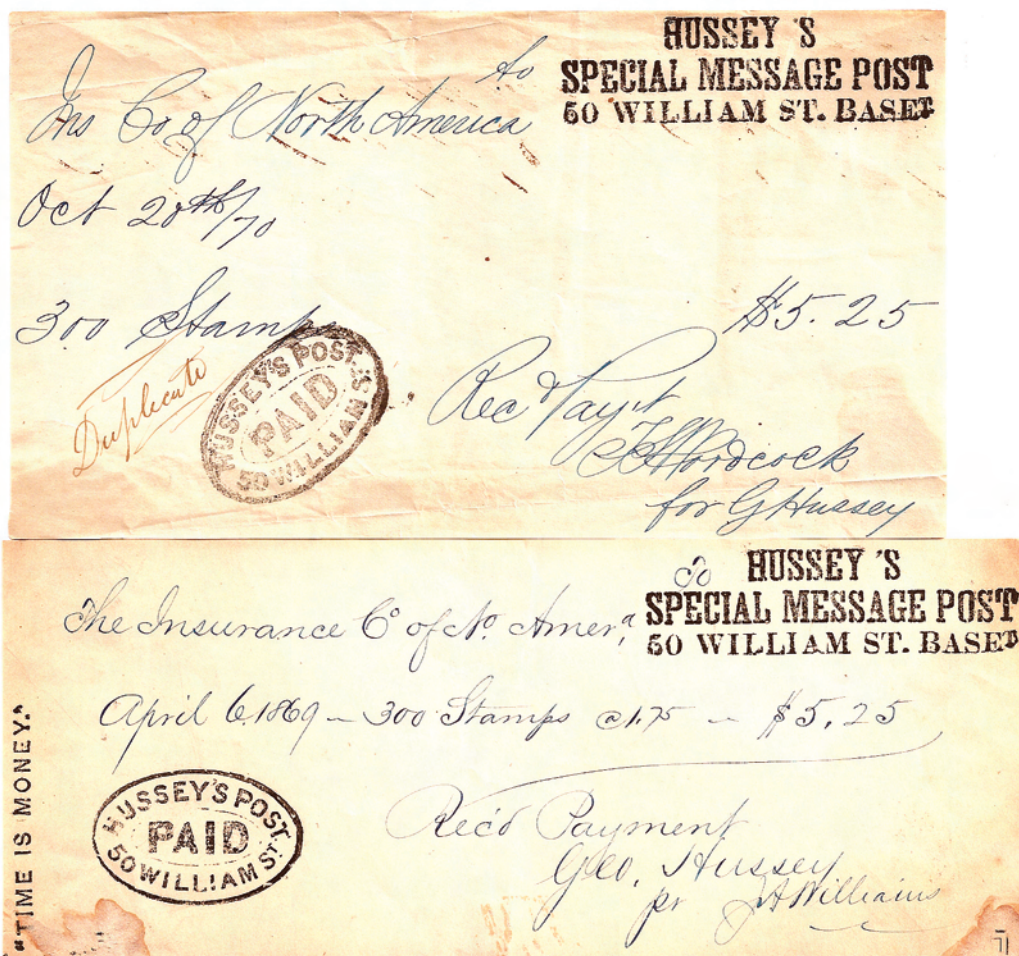 HUSSEY'S
SPECIAL MESSAGE POST
50 WILLIAM ST. BASET
to
Ins Co of North America
Oct 20th/70
300 Stamps
$5.25
Duplicate
HUSSEY'S POST
PAID
50 WILLIAM ST.
Rec'd Paym't
for G Hussey
HUSSEY'S
SPECIAL MESSAGE POST
50 WILLIAM ST. BASET
To
The Insurance Co of No. Amera.
April 6. 1869 – 300 Stamps @ 1.75 – $5.25
"TIME IS MONEY."
HUSSEY'S POST.
PAID
50 WILLIAM ST.
Rec'd Payment
Geo. Hussey
pr JA Williams